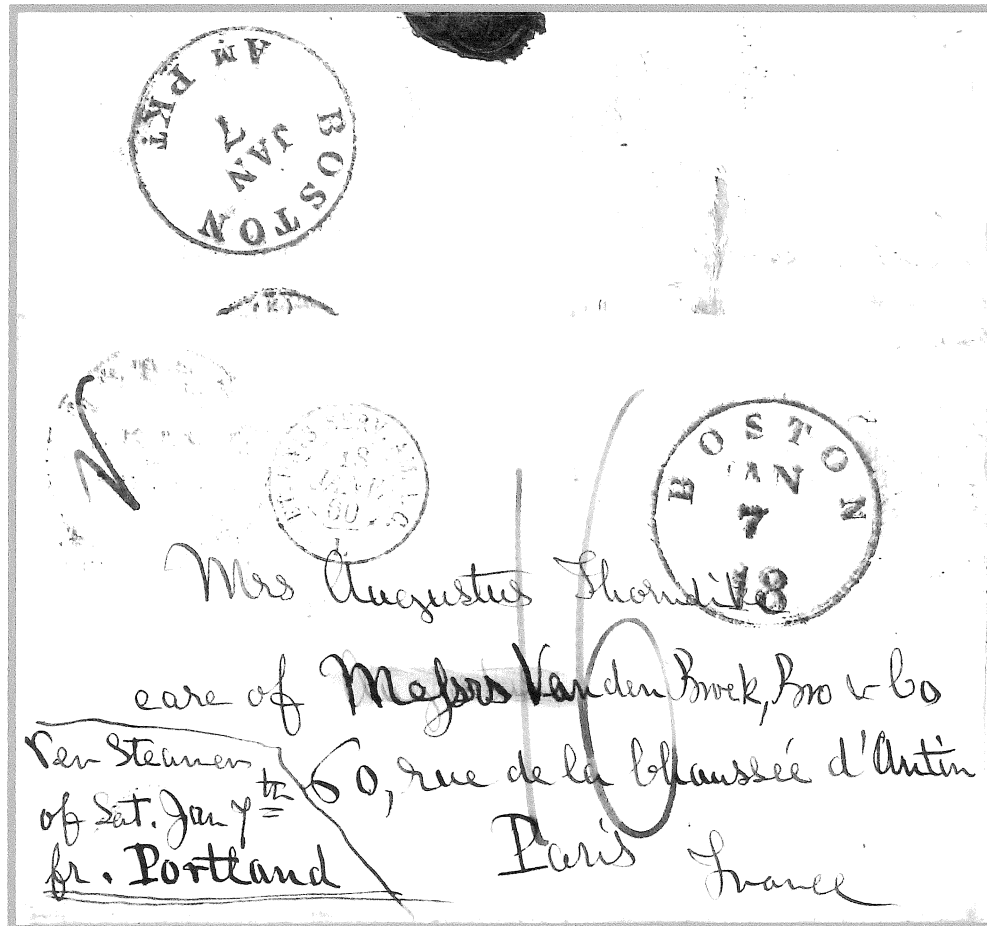 BOSTON
AM PKT
JAN
7
BOSTON
JAN
7
18
18
JANV
60
Mrs Augustus Thorndike
care of Messrs Van den Broek, Bro & Co
60, rue de la Chaussée d'Antin
Paris
France
Per Steamer
of Sat. Jan 7th
fr. Portland